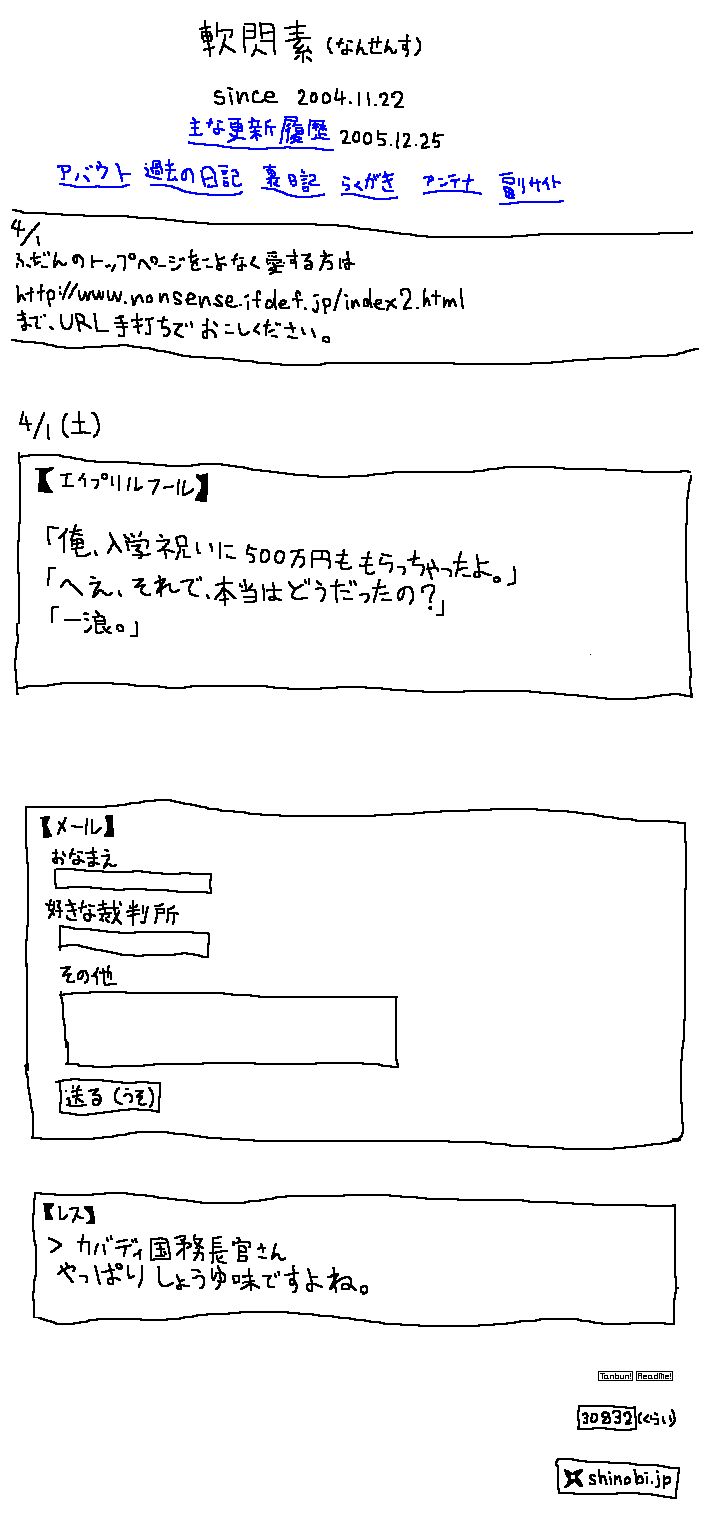 軟閃素(なんせんす)
since 2004.11.22
主な更新履歴 2005.12.25
アバウト 過去の日記 裏日記 らくがき アンテナ 副サイト
4/1
ふだんのトップページをこよなく愛する方は
http://www.nonsense.ifdef.jp/index2.html
まで、URL手打ちでおこしください。
4/1(土)
【エイプリルフール】
「俺、入学祝いに500万円ももらっちゃったよ。」
「へえ、それで、本当はどうだったの?」
「一浪。」
【メール】
おなまえ
好きな裁判所
その他
送る(うそ)
【レス】
>カバディ国務長官さん
やっぱりしょうゆ味ですよね。
Tanbun! ReadMe!
30832(くらい)
shinobi.jp